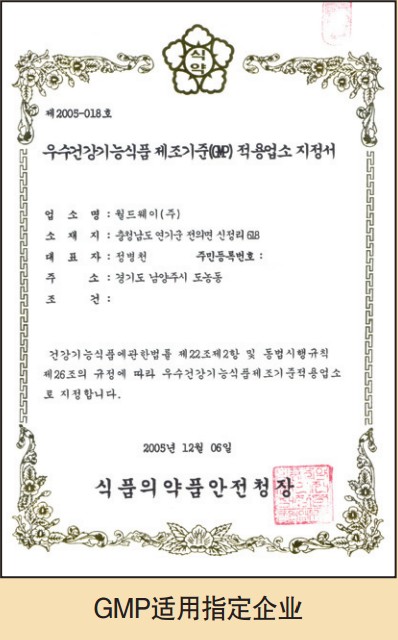 식
약
제2005-018호
우수건강기능식품 제조기준(GMP) 적용업소 지정서
업 소 명 : 월드웨이(주)
소 재 지 : 충청남도 연기군 전의면 신정리 618
대 표 자 : 정병천 주민등록번호 :
주 소 : 경기도 남양주시 도농동
조 건 :
건강기능식품에관한법률 제22조제2항 및 동법시행규칙
제26조의 규정에 따라 우수건강기능식품제조기준적용업소
로 지정합니다.
2005년 12월 06일
식품의약품안전청장
GMP适用指定企业